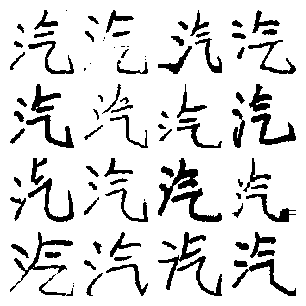 汽汽汽汽
汽汽汽汽
汽汽汽汽
汽汽汽汽